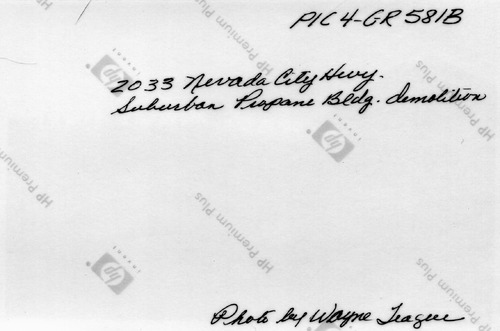 PIC 4-GR 581B
2033 Nevada City Hwy.
Suburban Propane Bldg. demolition
HP Premium Plus
hp
HP Premium Plus
hp
HP Premium Plus
HP Premium Plus
hp
HP Premium Plus
Photo by Wayne Teague